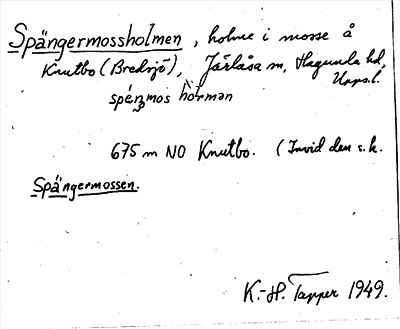 Spängermossholmen, holme i mosse å
Knutbo (Bredsjö), Järlåsa sn, Hagunda hd,
Upps.l.
675 m NO Knutbo. (Invid den s.k.
Spängermossen.
K.-H. Tapper 1949.